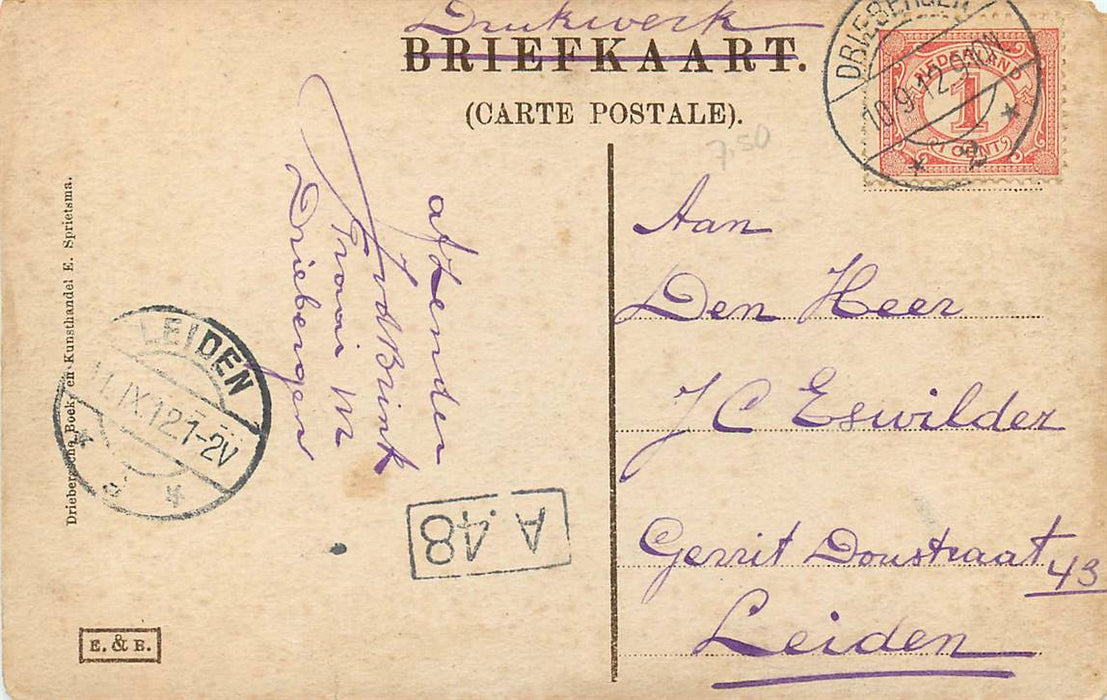 Drukwerk
BRIEFKAART.
(CARTE POSTALE).
7,50
DRIEBERGEN
10.9.12.9-10N
2
NEDERLAND
1
CENT
Aan
Den Heer
J C Eswilder
Gerrit Doustraat
43
Leiden
afzender
J vd Brink
Traai
Driebergen
LEIDEN
11.IX.12.1-2V
A.48
Driebergsche Boek- en Kunsthandel E. Sprietsma.
E. & B.